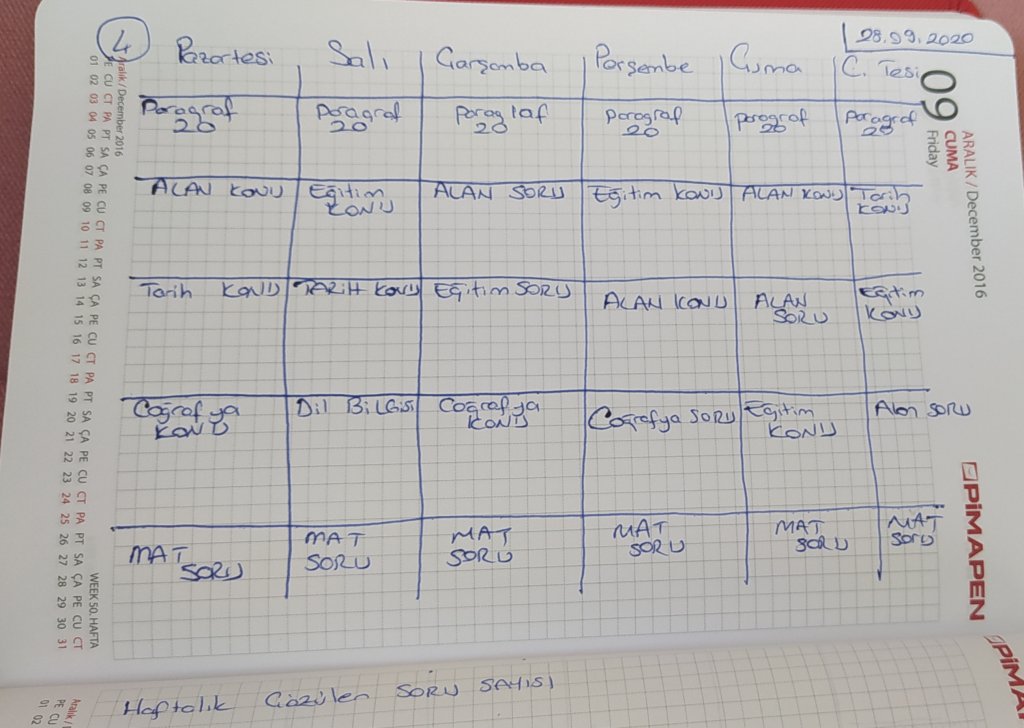 4
28.09.2020
Pazartesi Salı Çarşamba Perşembe Cuma C. Tesi
Paragraf 20 Paragraf 20 Paragraf 20 Paragraf 20 Paragraf 20 Paragraf 20
ALAN KONU Eğitim KONU ALAN SORU Eğitim KONU ALAN KONU Tarih KONU
Tarih KONU TARİH KONU Eğitim SORU ALAN KONU ALAN SORU Eğitim KONU
Coğrafya KONU Dil BİLGİSİ Coğrafya KONU Coğrafya SORU Eğitim KONU Alan SORU
MAT SORU MAT SORU MAT SORU MAT SORU MAT SORU MAT SORU
Haftalık Çözülen SORU SAYISI
09
ARALIK / December 2016
CUMA
Friday
PİMAPEN
PİMA
Aralık / December 2016
PE CU CT PA PT SA ÇA PE CU CT PA PT SA ÇA PE CU CT PA PT SA ÇA PE CU CT PA PT SA ÇA PE CU CT
01 02 03 04 05 06 07 08 09 10 11 12 13 14 15 16 17 18 19 20 21 22 23 24 25 26 27 28 29 30 31
WEEK 50. HAFTA
Aralık /
PE CU
01 02